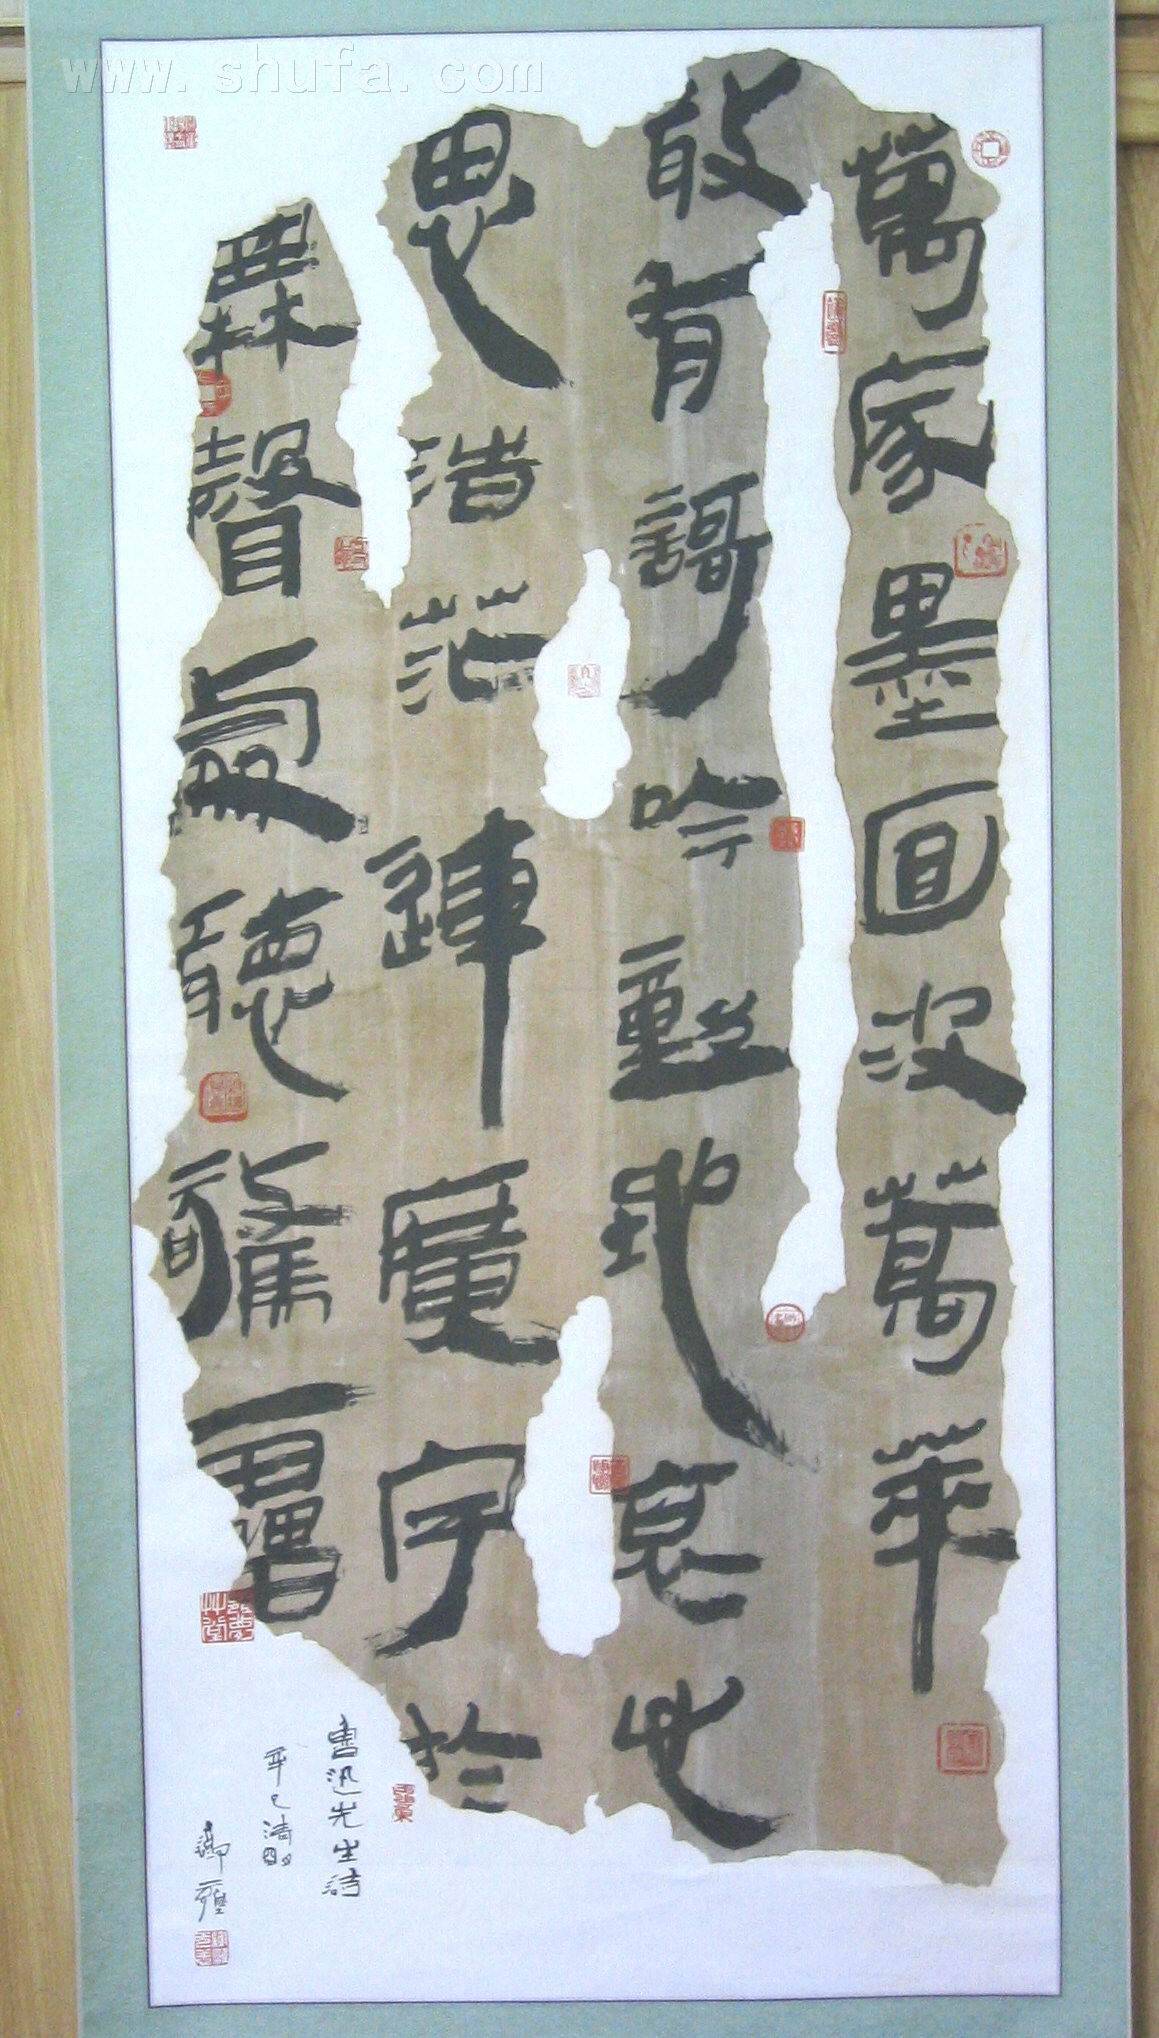 www.shufa.com
萬家墨面没蒿萊
敢有謌吟動地哀心
思浩茫連廣宇於
無聲處聽驚雷
魯迅先生詩
辛巳清明